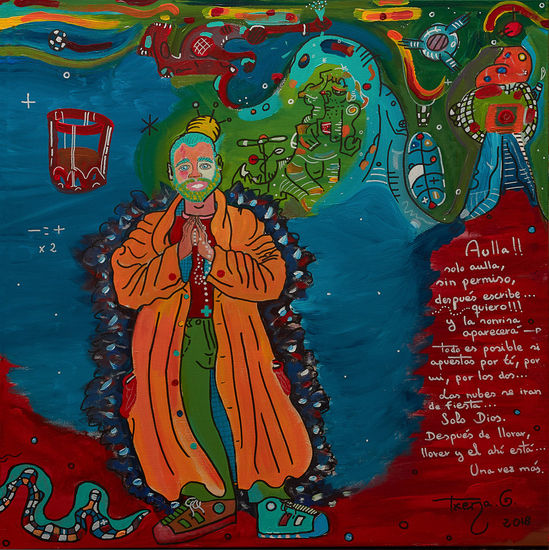 - = +
x 2
Aulla!!
solo aulla,
sin permiso,
después escribe...
quiero!!!
y la sonrisa
aparecerá
todo es posible si
apuestas por tí, por
mi, por los dos...
Las nubes se iran
de fiesta...
Solo Dios.
Después de llorar,
llorar y el ahí está...
Una vez más.
Txerja G
2018